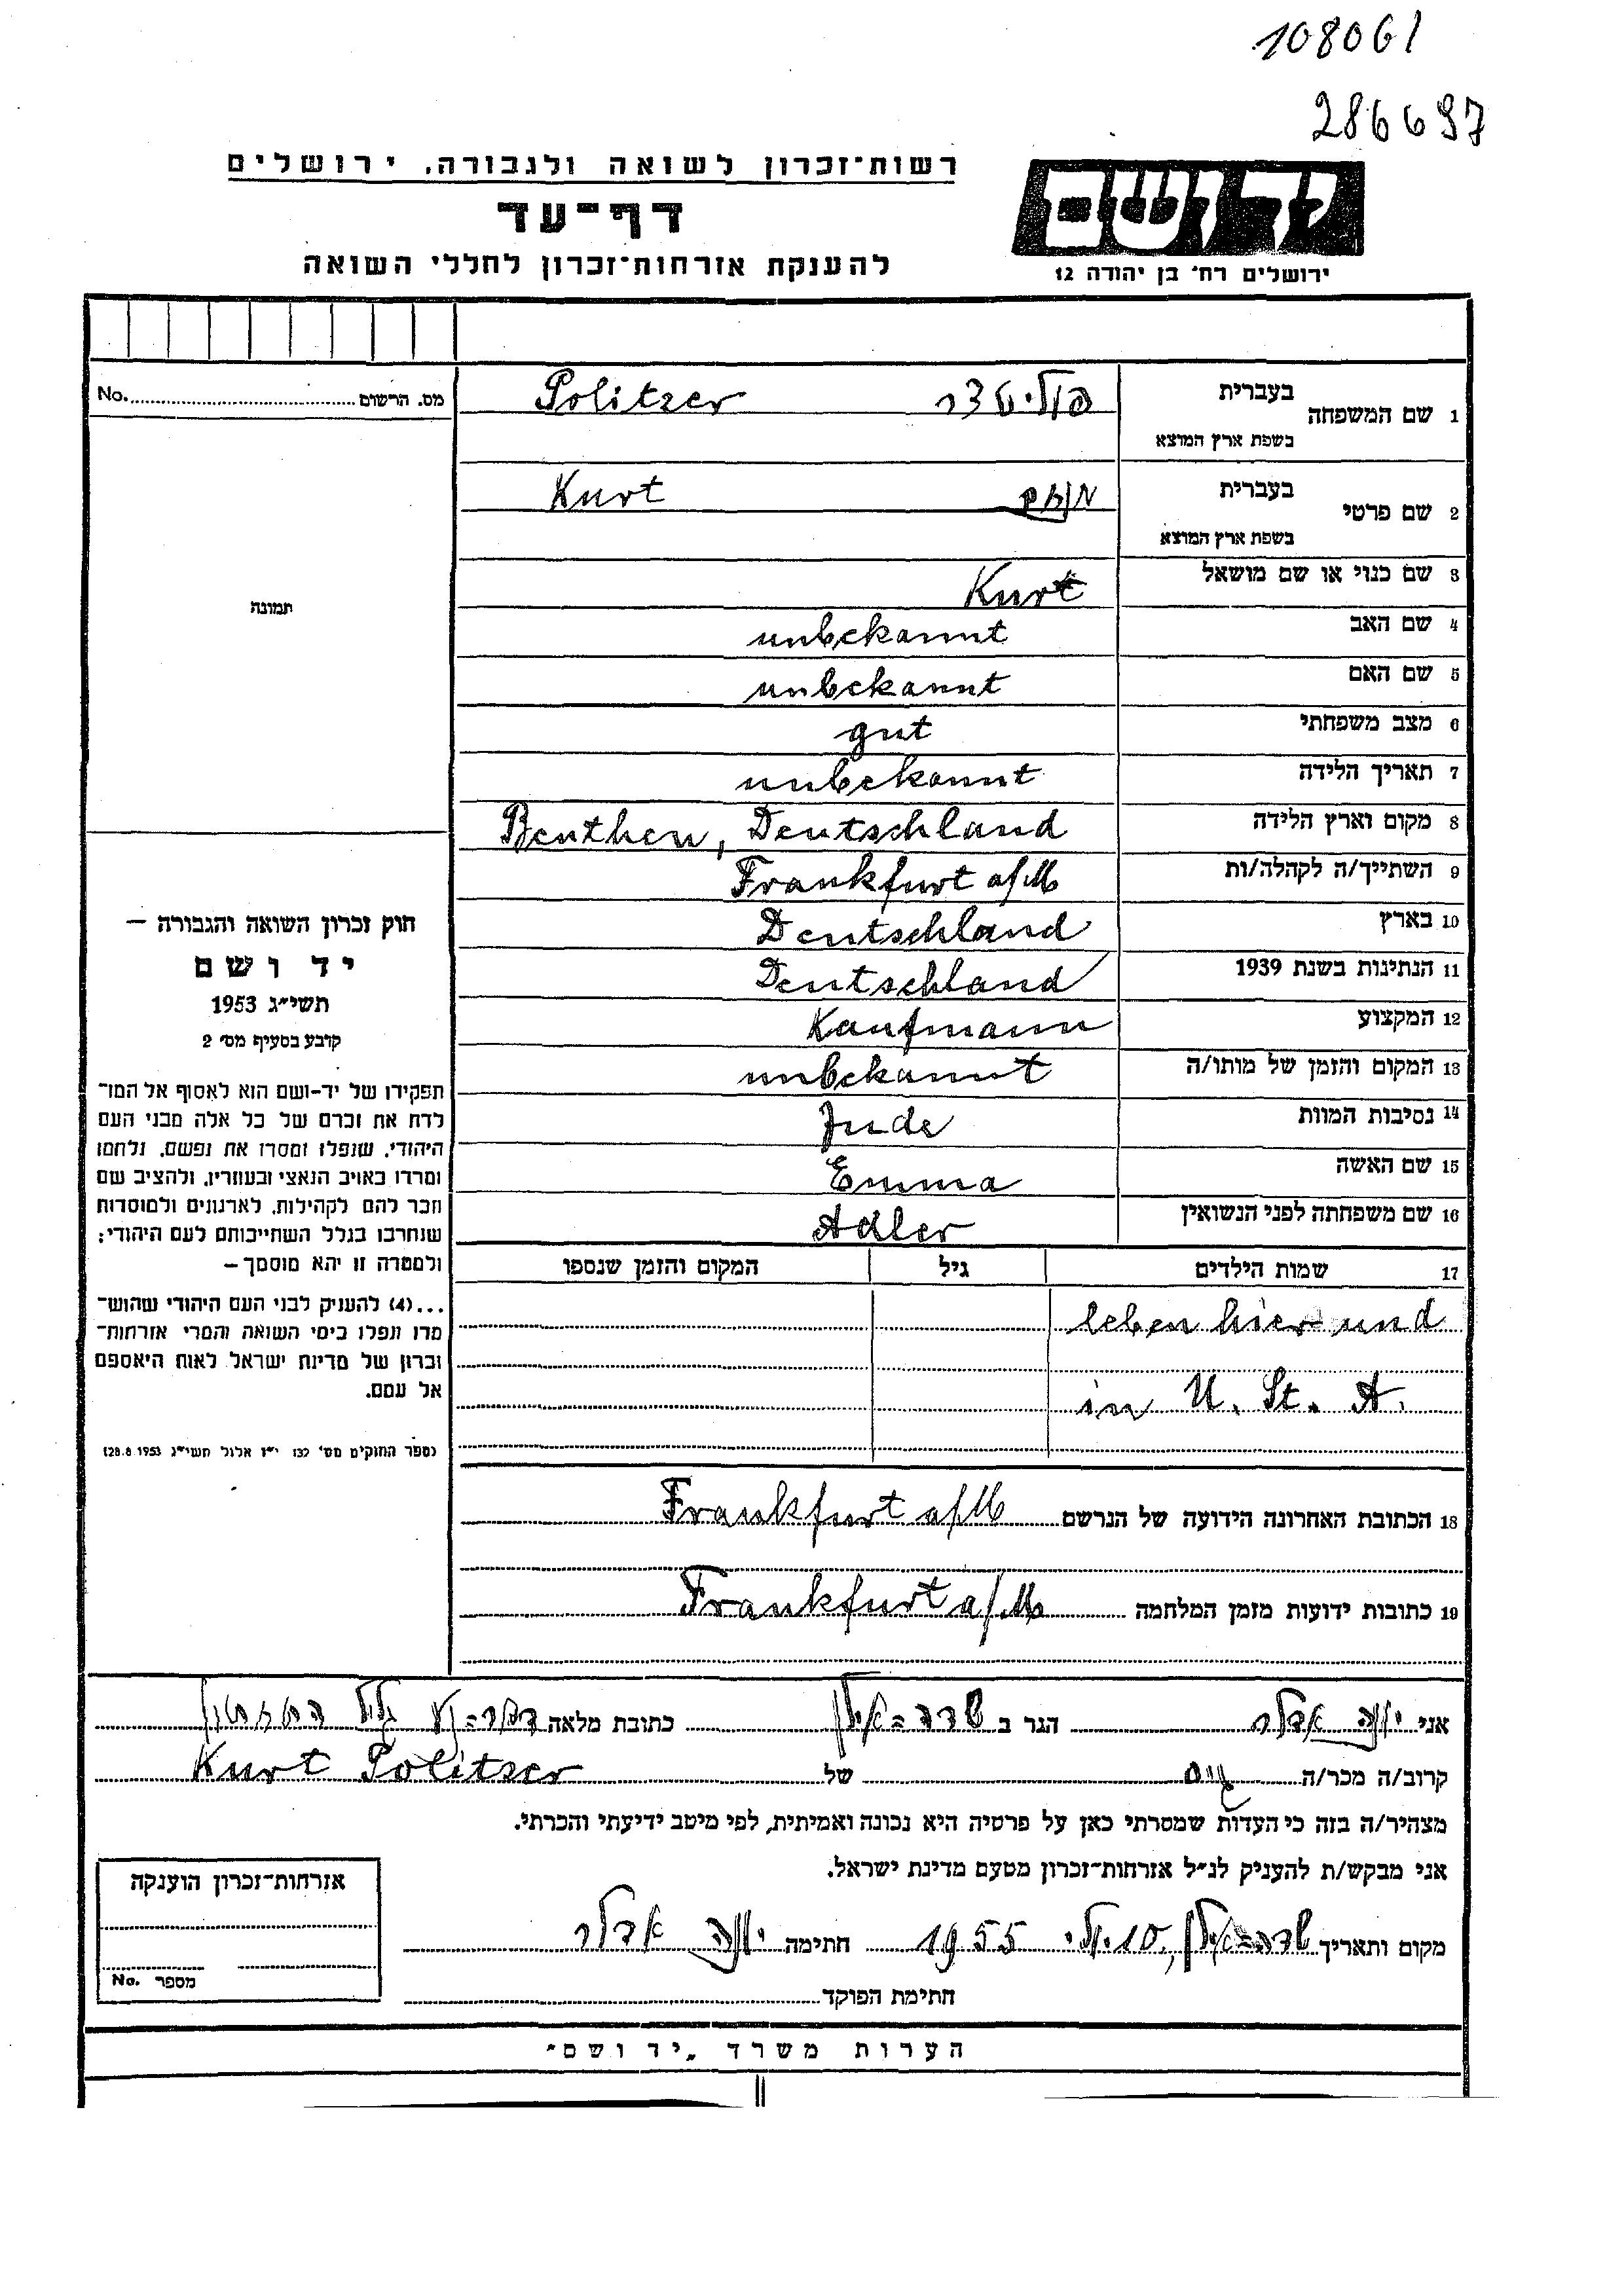 108061
286697
רשות־זכרון לשואה ולגבורה, ירושלים
דף־עד
להענקת אזרחות־זכרון לחללי השואה
יד ושם
ירושלים רח׳ בן יהודה 12
מס. הרשום No.
תמונה
1 שם המשפחה בעברית פוליטצר Politzer
בשפת ארץ המוצא
2 שם פרטי בעברית Kurt
בשפת ארץ המוצא
3 שם כנוי או שם מושאל Kurt
4 שם האב unbekannt
5 שם האם unbekannt
6 מצב משפחתי gut
7 תאריך הלידה unbekannt
8 מקום וארץ הלידה Beuthen, Deutschland
9 השתייך/ה לקהלה/ות Frankfurt a/M
10 בארץ Deutschland
11 הנתינות בשנת 1939 Deutschland
12 המקצוע Kaufmann
13 המקום והזמן של מותו/ה unbekannt
14 נסיבות המוות Jude
15 שם האשה Emma
16 שם משפחתה לפני הנשואין Adler
17 שמות הילדים גיל המקום והזמן שנספו
leben hier und
in U. St. A.
18 הכתובת האחרונה הידועה של הנרשם Frankfurt a/M
19 כתובות ידועות מזמן המלחמה Frankfurt a/M
חוק זכרון השואה והגבורה —
יד ושם
תשי״ג 1953
קובע בסעיף מס׳ 2
תפקידו של יד-ושם הוא לאסוף אל המו־
לדת את זכרם של כל אלה מבני העם
היהודי, שנפלו ומסרו את נפשם, נלחמו
ומרדו באויב הנאצי ובעוזריו, ולהציב שם
וזכר להם לקהילות, לארגונים ולמוסדות
שנחרבו בגלל השתייכותם לעם היהודי;
ולמטרה זו יהא מוסמך —
...(4) להעניק לבני העם היהודי שהוש־
מדו ונפלו בימי השואה והמרי אזרחות־
זכרון של מדינת ישראל לאות היאספם
אל עמם.
(ספר החוקים מס׳ 132 י״ז אלול תשי״ג 28.8.1953)
אני יונה אדלר הגר ב שדה-אילן כתובת מלאה
קרוב/ה מכר/ה גיס של Kurt Politzer
מצהיר/ה בזה כי העדות שמסרתי כאן על פרטיה היא נכונה ואמיתית, לפי מיטב ידיעתי והכרתי.
אני מבקש/ת להעניק לנ״ל אזרחות־זכרון מטעם מדינת ישראל.
מקום ותאריך שדה-אילן, 10 יולי 1955 חתימה יונה אדלר
חתימת הפוקד
אזרחות־זכרון הוענקה
מספר No.
הערות משרד „יד ושם״